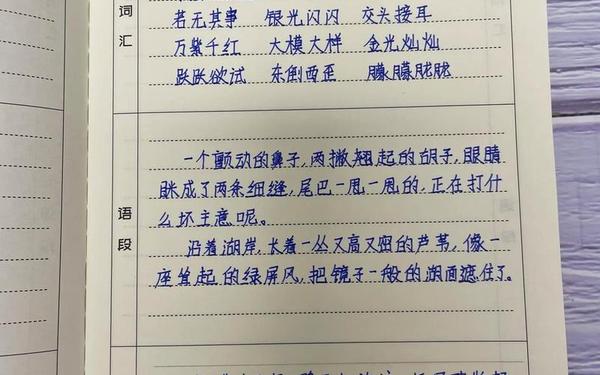 词汇
若无其事 银光闪闪 交头接耳
万紫千红 大模大样 金光灿灿
跃跃欲试 东倒西歪 朦朦胧胧
语段
一个颤动的鼻子,两撇翘起的胡子,眼睛
眯成了两条细缝,尾巴一甩一甩的,正在打什
么坏主意呢。
沿着湖岸,长着一丛又高又密的芦苇,像一
座耸起的绿屏风,把镜子一般的湖面遮住了。